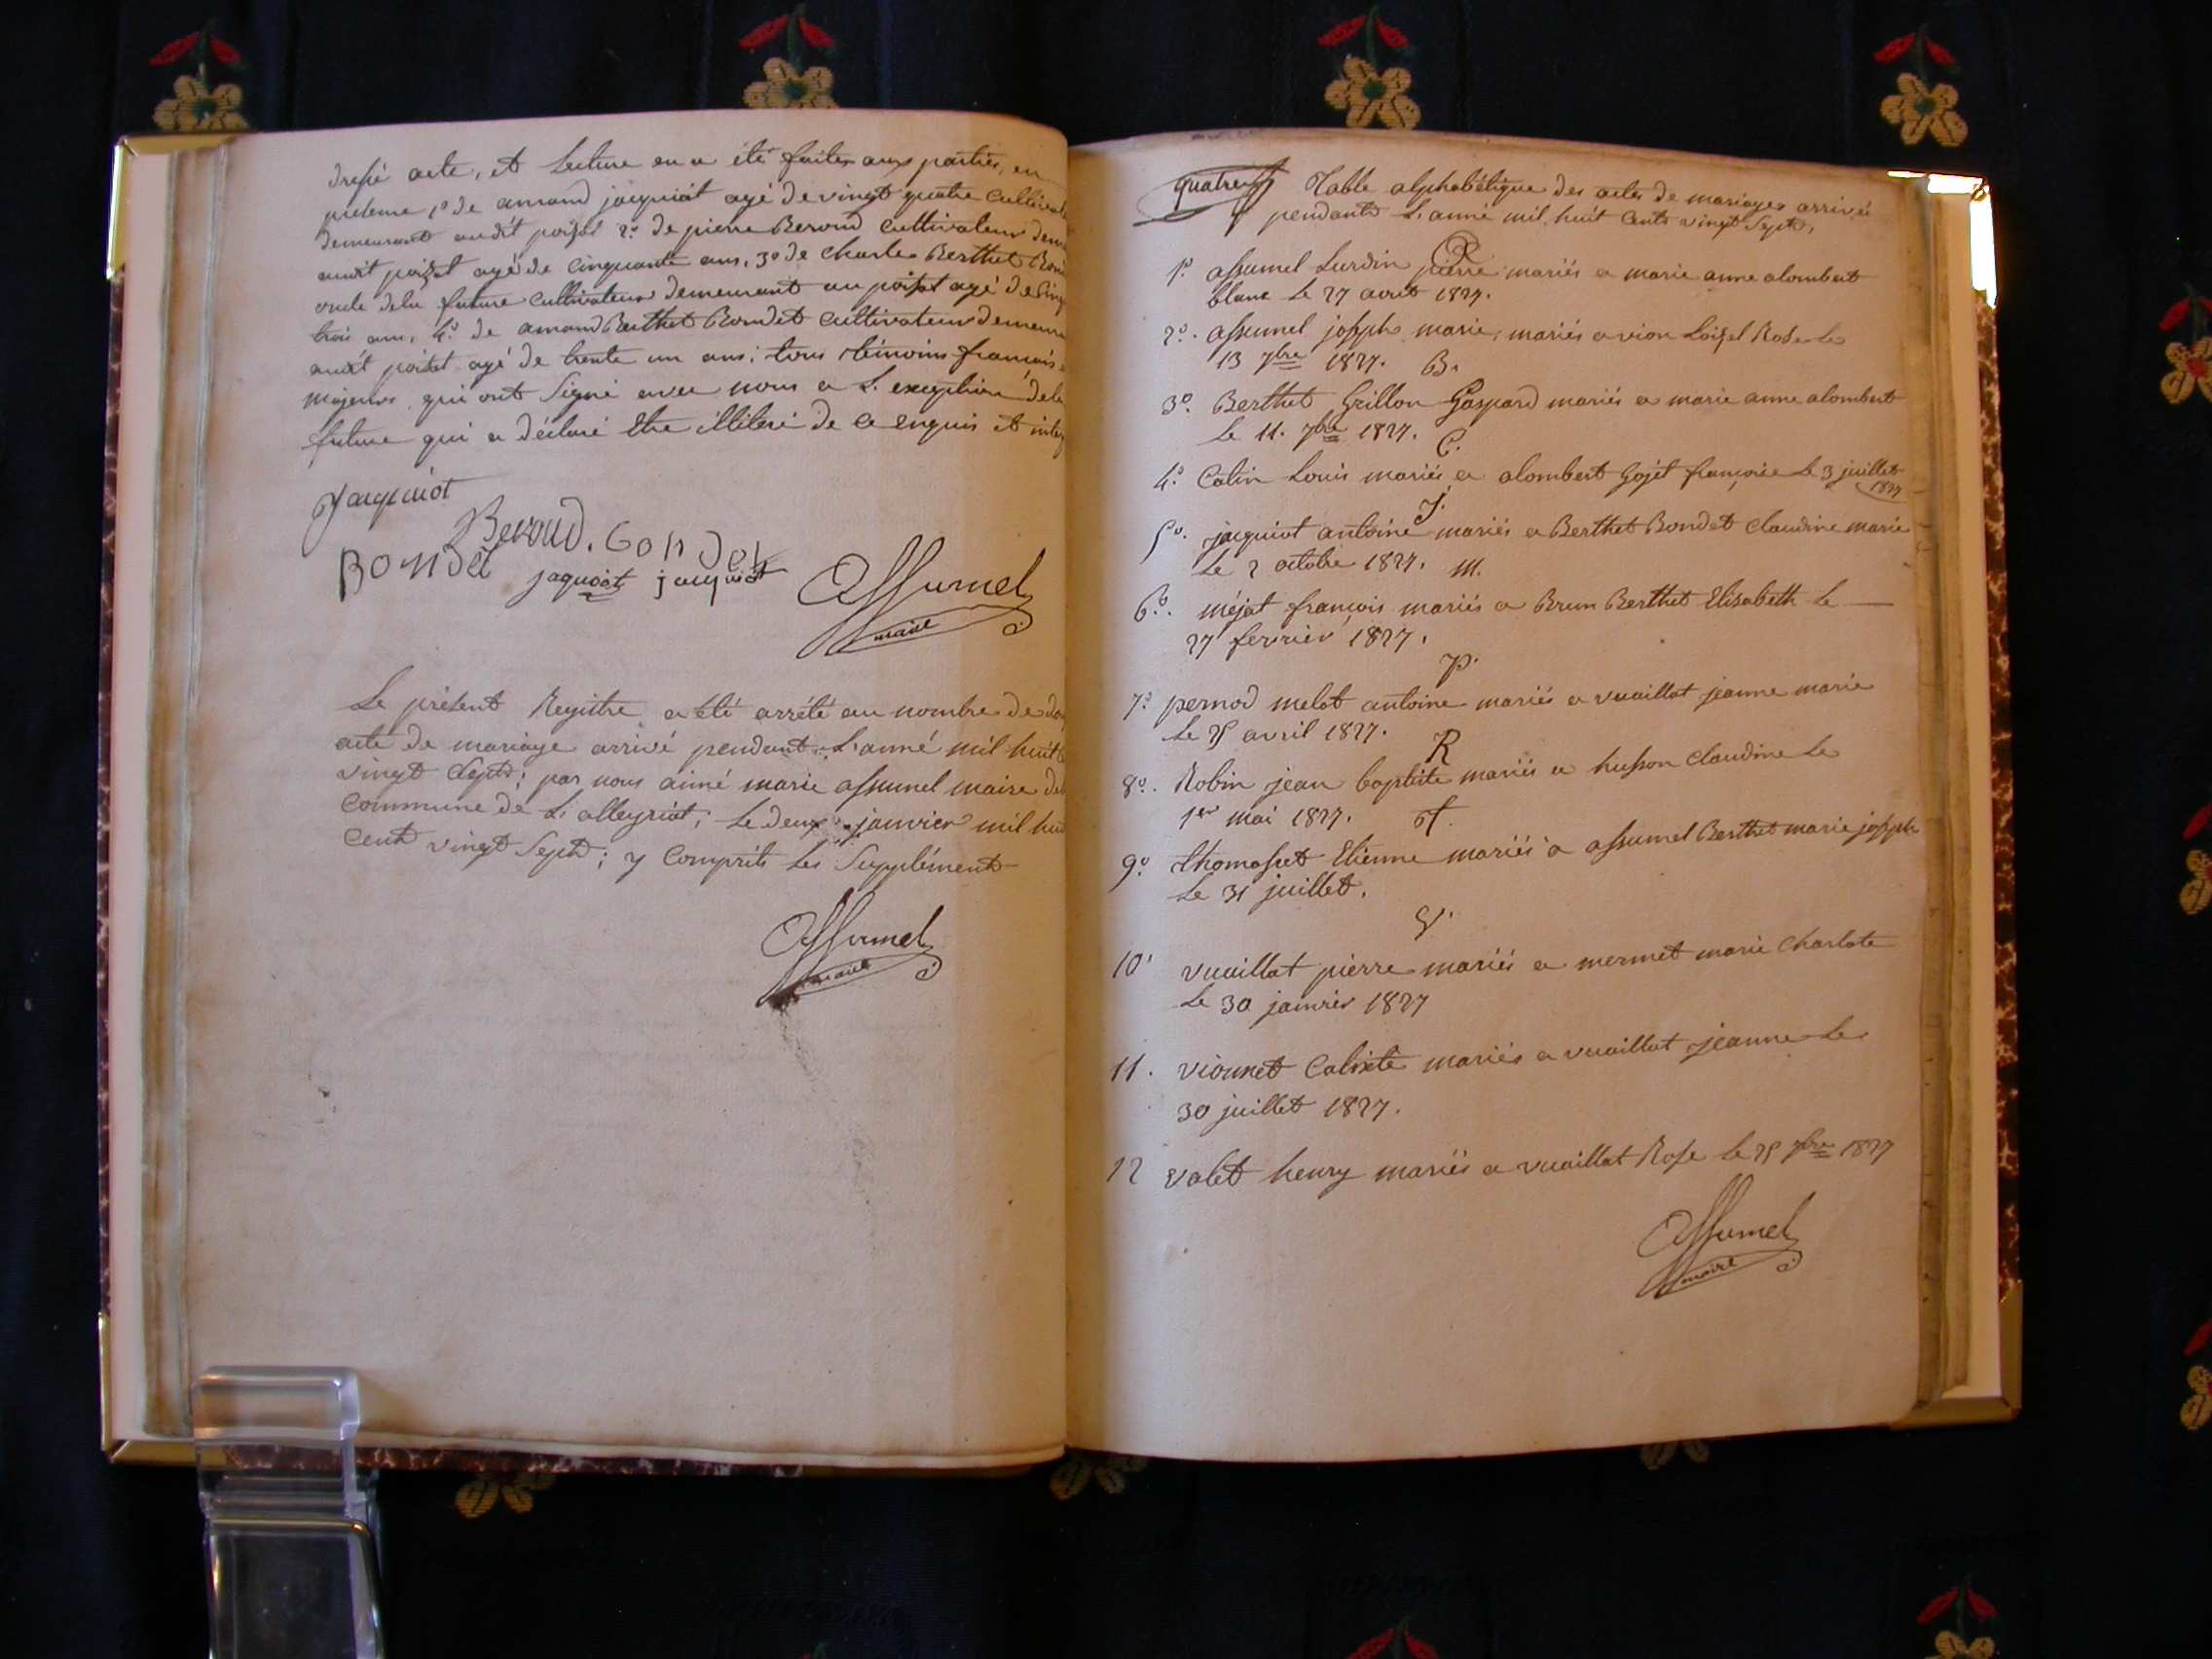 dressé acte, et Lecture en a été faites aux parties, en
présence 1º de amand jacquiot agé de vingt quatre Cultivat
demeurant audit poizat 2º de pierre Beroud Cultivateur dem
audit poizat agé de Cinquante ans, 3º de Charles Berthet Bon
oncle dela future Cultivateur demeurant au poizat agé de Cinq
trois ans, 4º de amand Berthet Bondet Cultivateur demeur
audit poizat agé de trente un ans; tous témoins français
majeurs qui ont Signé avec nous a L'exception dela
future qui a déclaré Etre illiteré de ce enquis et inter
Jacquiot
Beroud. Gondet
Bondet jaquiot jacquiot Assumel
maire
Le présent Registre a été arrété au nombre de do
acte de mariage arrivé pendant L'anné mil huit C
vingt Sept; par nous aimé marie assumel maire de
Commune de L'alleyriat; Le deux janvier mil hui
Cent vingt Sept; y Compris Les Supplément
Assumel
maire
quatre Table alphabétique des actes de mariages arrivé
pendant L'anné mil huit Cent vingt Sept,
1º assumel Surdin pierre mariés a marie anne alombert
blanc Le 27 aout 1827.
2º. assumel joseph marie, mariés a vion Loizel Rose Le
13 7bre 1827. B.
3º. Berthet Grillon Gaspard mariés a marie anne alombert
Le 11. 7bre 1827. C.
4º. Catin Louis mariés a alombert Gojet françoise Le 3 juillet
1827
J.
5º. jacquiot antoine mariés a Berthet Bondet Claudine marie
Le 2 octobre 1827. M.
6º. méjat françois mariés a Brun Berthet Elisabeth Le
27 fevrier 1827.
P.
7º pernod melot antoine mariés a vuaillat jeanne marie
Le 25 avril 1827.
R
8º. Robin jean baptiste mariés a husson Claudine Le
1er mai 1827. T.
9º. thomasset Etienne mariés a assumel Berthet marie joseph
Le 31 juillet.
V.
10 vuaillat pierre mariés a mermet marie Charlote
Le 30 janvier 1827
11. viounet Calixte mariés a vuaillat jeanne Le
30 juillet 1827.
12 valet henry mariés a vuaillat Rose Le 25 7bre 1827
Assumel
maire